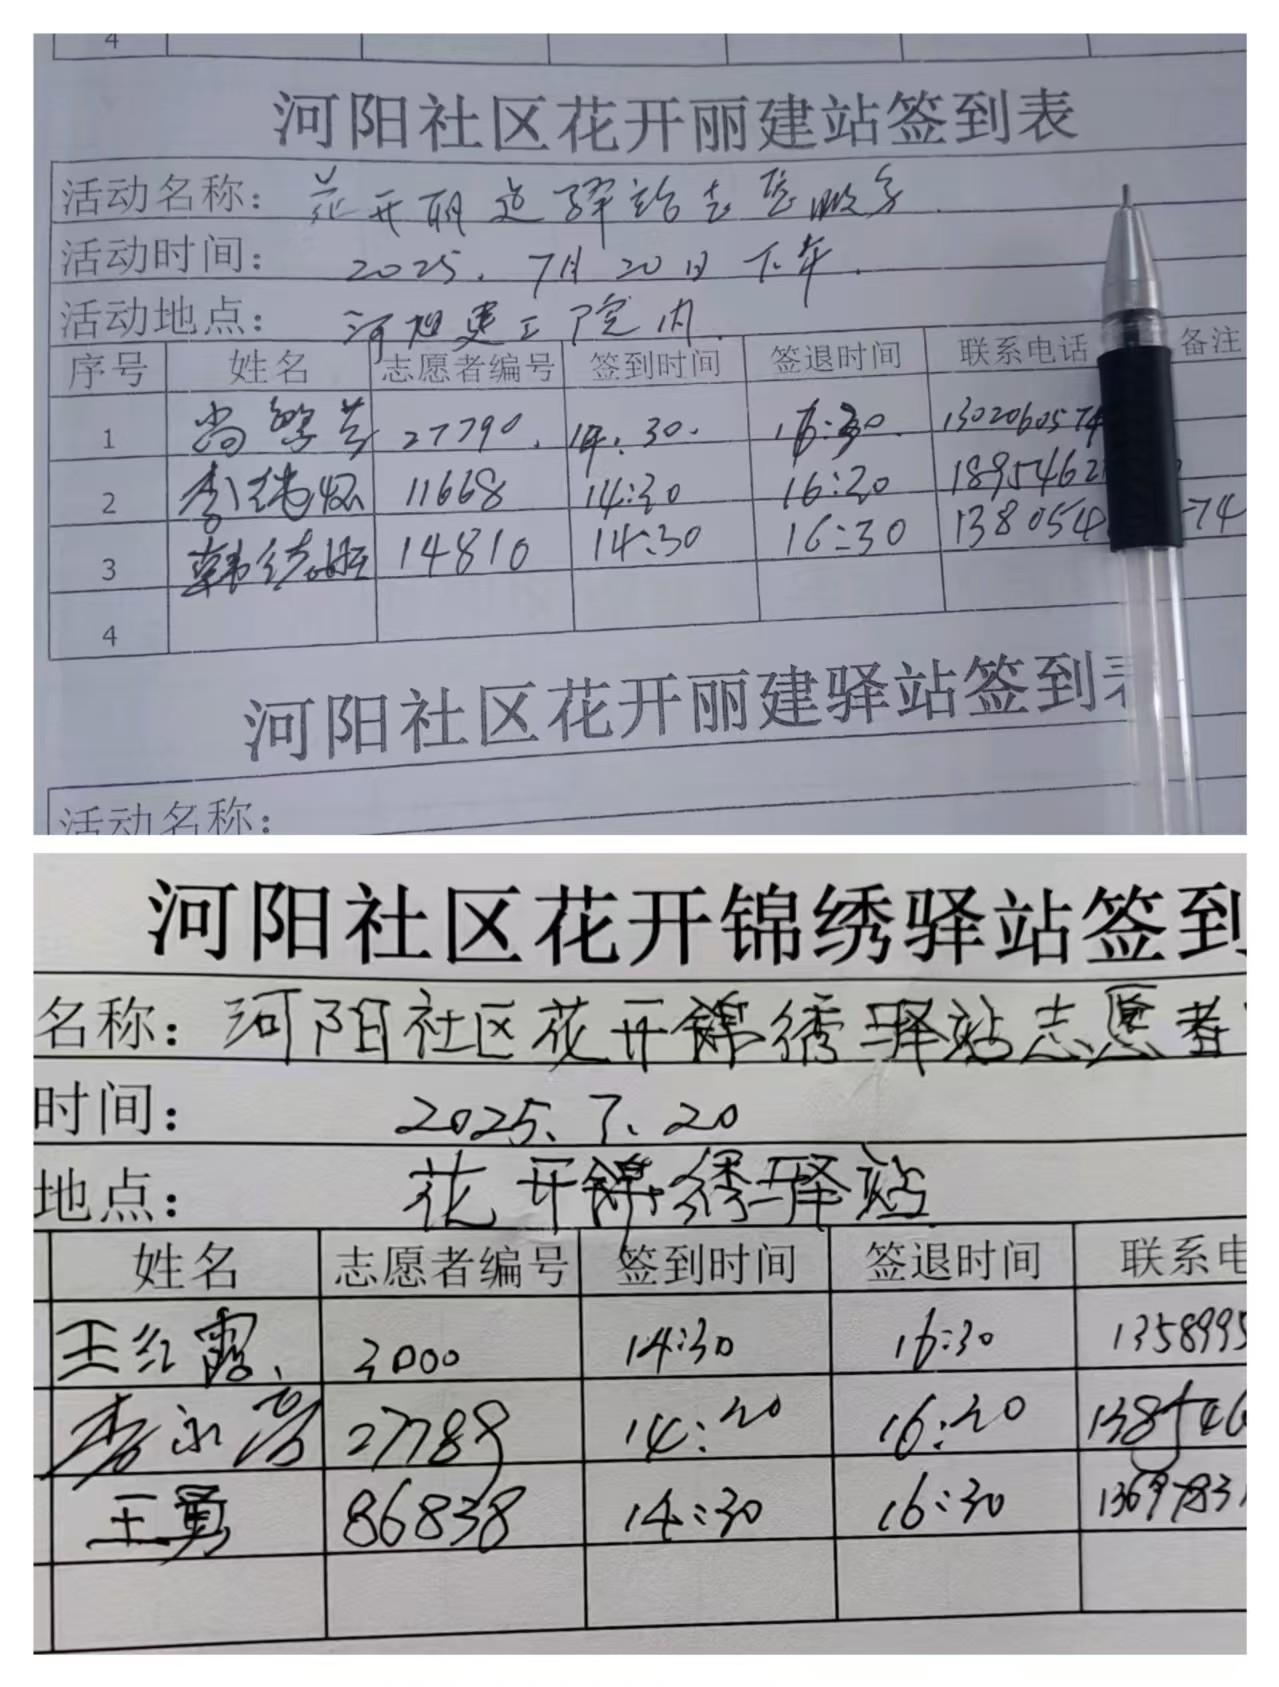 4
河阳社区花开丽建站签到表
活动名称： 花开丽建驿站志愿服务
活动时间： 2025. 7月20日下午.
活动地点： 河阳建工院内
序号 姓名 志愿者编号 签到时间 签退时间 联系电话 备注
1 27790. 14:30. 16:30. 130206057
2 11668 14:30 16:30 1895462
3 14810 14:30 16:30 138054 74
4
河阳社区花开丽建驿站签到
活动名称：
河阳社区花开锦绣驿站签到
名称： 河阳社区花开锦绣驿站志愿者
时间： 2025.7.20
地点： 花开锦绣驿站
姓名 志愿者编号 签到时间 签退时间 联系电
王红霞、 3000 14:30 16:30 1358995
李永芳 27789 14:30 16:30 138546
王勇 86838 14:30 16:30 1369783